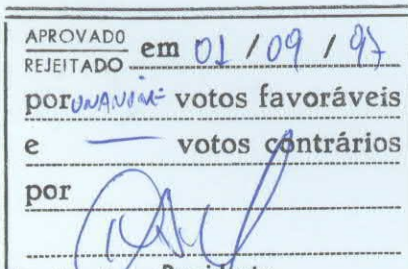 APROVADO
REJEITADO em 01 / 09 / 97
por unanime votos favoráveis
e — votos contrários
por
Presidente